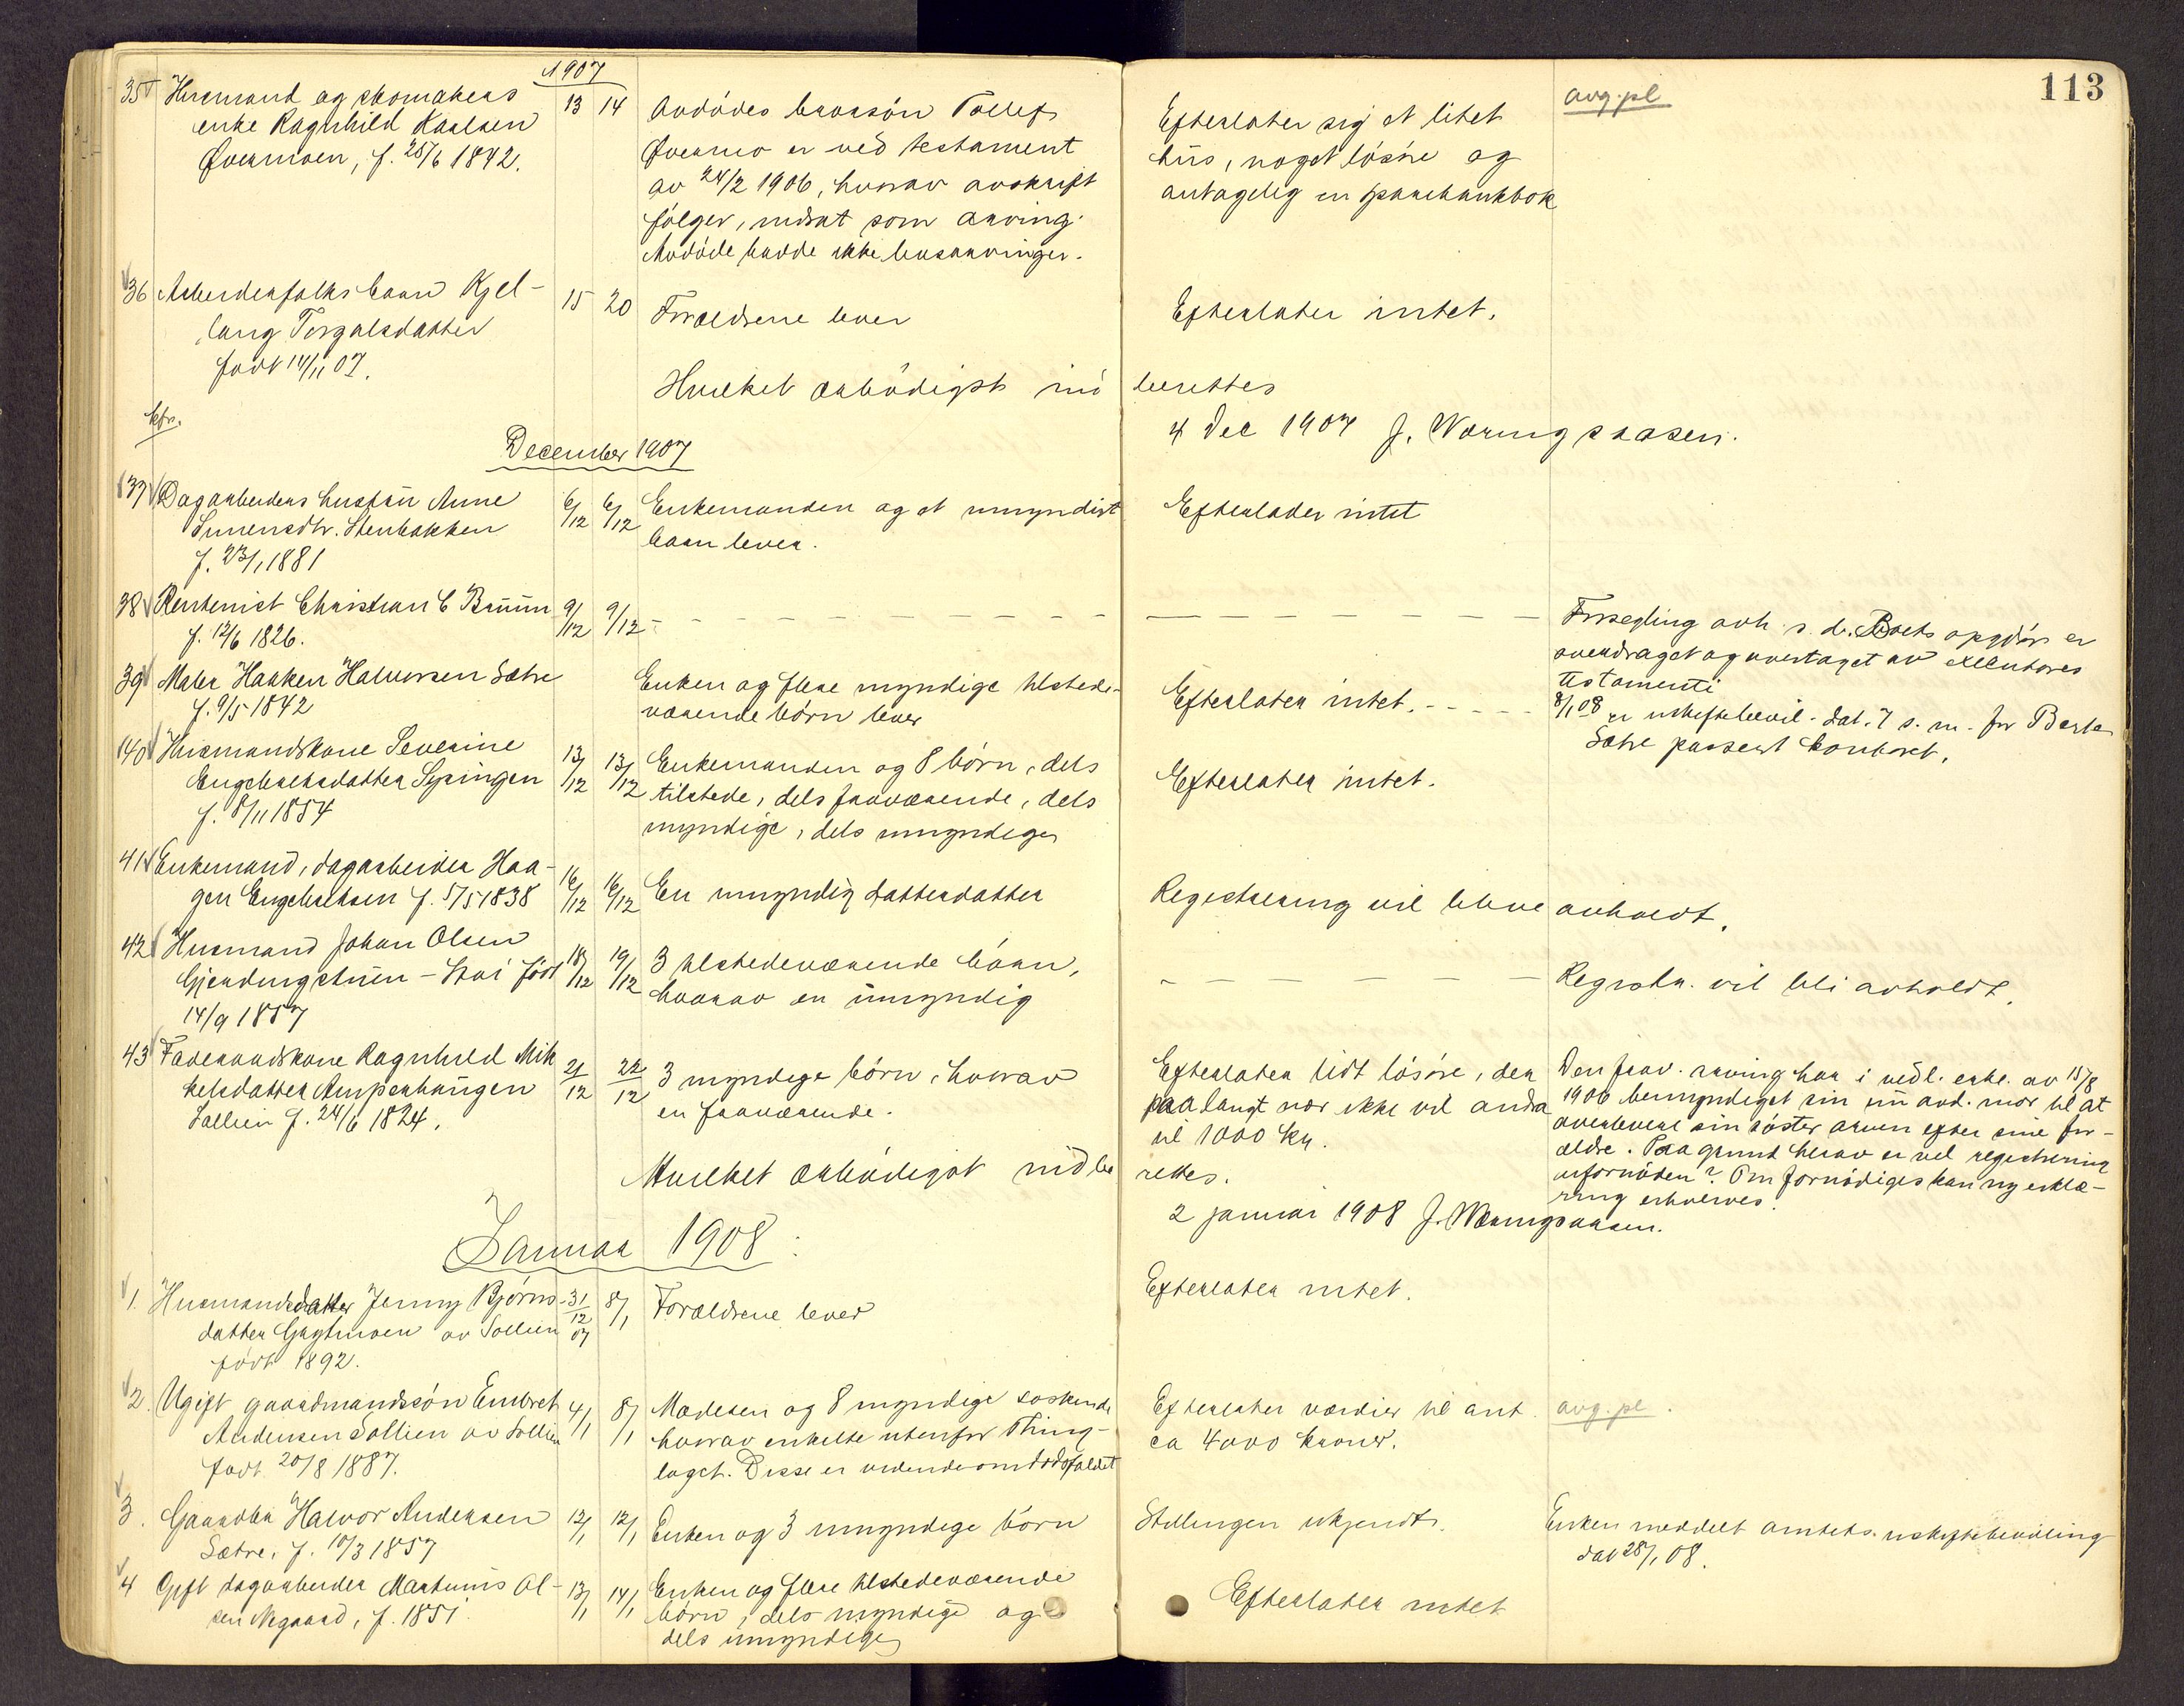 113
1907
35 Husmand og skomakers
enke Ragnhild Karlsen
Øvermoen, f. 25/6 1842.
13 14
Avdödes brorsön Tollef
Övermo er ved testament
av 24/2 1906, hvorav avskrift
følger, indsat som arving.
Avdöde hadde ikke livsarvinger.
Efterlater sig et litet
hus, noget lösöre og
antagelig en sparebankbok
avg.pl
36 Arbeiderfolks barn Kjel-
laug Torgalsdatter
født 14/11 07.
15 20
Forældrene lever
Efterlater intet.
Hvilket ærbödigst ind berettes
4 Dec 1907 J. Væringsaasen.
kfr.
December 1907
37 Dagarbeiders hustru Anne
Simensdtr. Stenbakken
f. 23/1 1881
6/12 6/12
Enkemanden og et umyndigt
barn lever.
Efterlader intet
38 Rentenist Christian C Bruun
f. 12/6 1826.
9/12 9/12 - - - - - - -
Forsegling avh. s. d. Boets opgjör er
overdraget og overtaget av executores
testamenti
39 Maler Haaken Halvorsen Sætre
f. 9/5 1842
Enken og flere myndige tilstede-
værende börn lever
Efterlater intet. - - - - -
8/1 08 er uskiftebevil. dat. 7 s. m. for Berte
Sætre passert kontoret.
40 Husmandskone Severine
Engebretsdatter Syringen
f. 8/11 1854
13/12 13/12
Enkemanden og 8 börn, dels
tilstede, dels fraværende, dels
myndige, dels umyndige
Efterlater intet.
41 Enkemand, dagarbeider Haa-
gen Engebretsen f. 5/5 1838
16/12 16/12
En umyndig datterdatter
Registrering vil blive avholdt.
42 Husmand Johan Olsen
Gjerdingstuen - født
14/9 1857
18/12 19/12
3 tilstedeværende börn,
hvorav en umyndig
- - - - -
Registr. vil bli avholdt.
43 Føderaadskone Ragnhild Mik
kelsdatter Amperhaugen
Sollien f. 24/6 1824.
21/12 22/12
3 myndige börn, hvorav
en fraværende.
Efterlater lidt lösöre, der
paa langt nær ikke vil andra
til 1000 kr.
Den frav. arving har i vedl. erkl. av 15/8
1906 bemyndiget sin nu avd. mor til at
overlevere sin söster arven efter sine for-
ældre. Paa grund herav er vel registrering
ufornöden? Om fornödiges kan ny erklæ-
ring erhverves.
Hvilket ærbödigst indbe rettes.
2 januar 1908 J. Væringsaasen.
Januar 1908:
1. Husmandsdatter Jenny Björns-
datter av Sollien
født 1892.
31/12 07 8/1
Forældrene lever
Efterlater intet.
2. Ugift gaardmandssön Embret
Andersen Sollien av Sollien
født 20/8 1887.
4/1 8/1
Moderen og 8 myndige söskende
hvorav enkelte utenfor Thing-
laget. Disse er vidende om dödsfaldet
Efterlater værdier til ant.
ca 4000 kroner.
avg. pl.
3. Gaardbr. Halvor Andersen
Sætre, f. 10/3 1857
12/1 12/1
Enken og 3 umyndige börn
Stillingen ukjendt.
Enken meddelt amtets uskiftebevilling
dat 28/1 08.
4 Gift dagarbeider Martinus Ol-
sen Nygaard, f. 1851.
13/1 14/1
Enken og flere tilstedeværende
börn, dels myndige og
dels umyndige
Efterlater intet